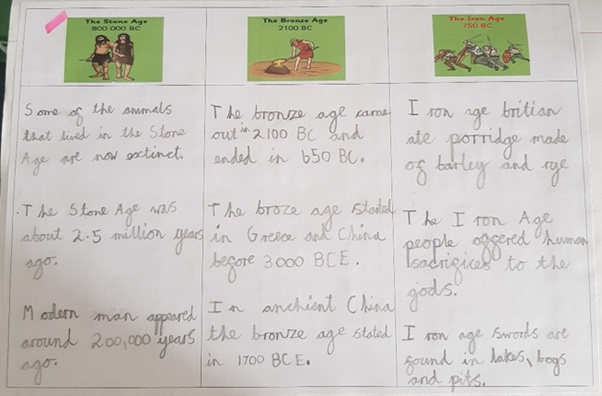 The Stone Age
800 000 BC
Some of the animals
that lived in the Stone
Age are now extinct.
The Stone Age was
about 2.5 million years
ago.
Modern man appeared
around 200,000 years
ago.
The Bronze Age
2100 BC
The bronze age came
out in 2100 BC and
ended in 650 BC.
The broze age stated
in Greece and China
before 3000 BCE.
In anchient China
the bronze age stated
in 1700 BCE.
The Iron Age
750 BC
Iron age britian
ate porridge made
of barley and rye
The Iron Age
people offered human
sacrifices to the
gods.
Iron age swords are
found in lakes, bogs
and pits.